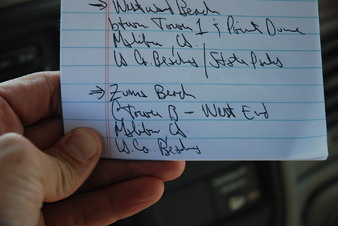 → Westward Beach
btwn Tower 1 & Point Dume
Malibu CA
LA Co. Beaches / State Parks
→ Zuma Beach
Tower 8 - West End
Malibu CA
LA Co. Beaches